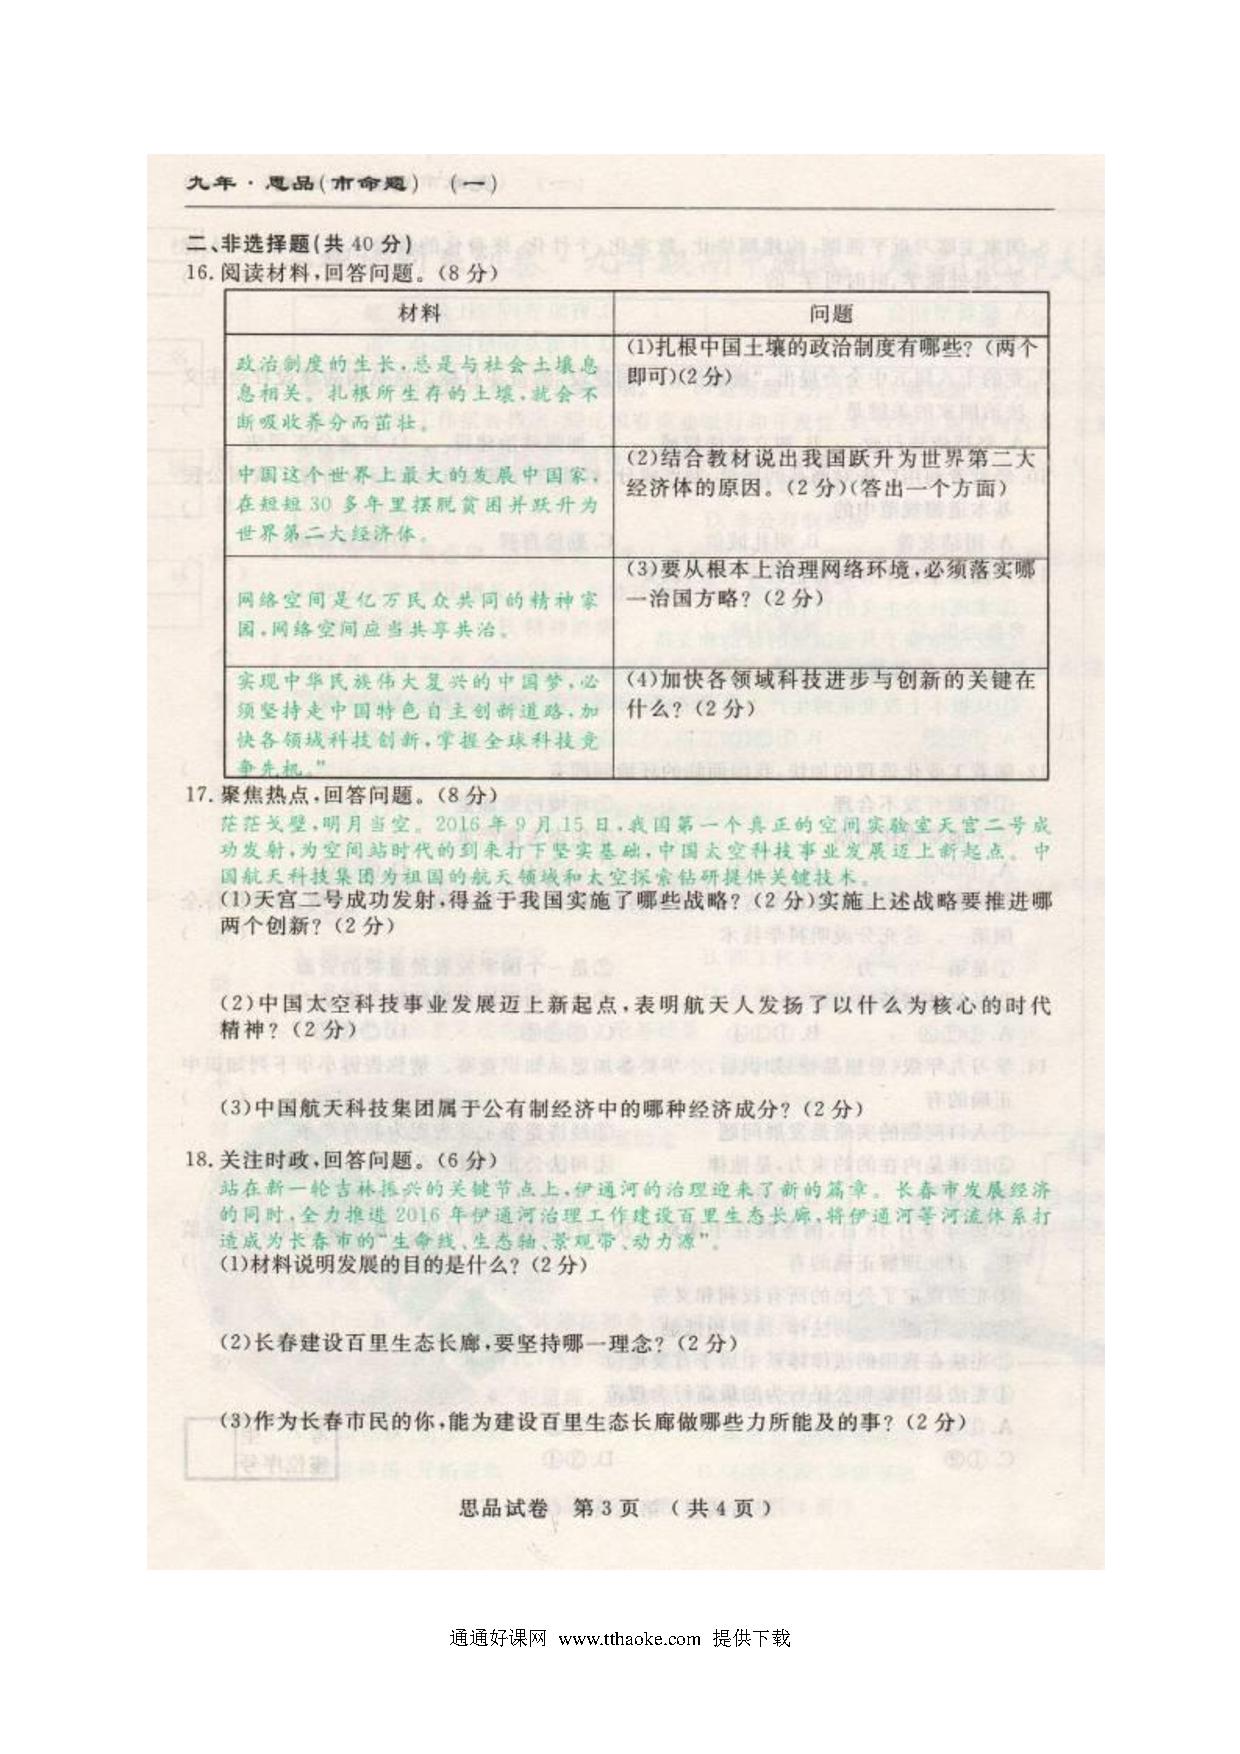 九年·思品(市命题) (一)
二、非选择题(共 40 分)
16.阅读材料,回答问题。(8 分)
材料
问题
政治制度的生长,总是与社会土壤息
息相关。扎根所生存的土壤,就会不
断吸收养分而茁壮。
(1)扎根中国土壤的政治制度有哪些?(两个
即可)(2 分)
中国这个世界上最大的发展中国家,
在短短 30 多年里摆脱贫困并跃升为
世界第二大经济体。
(2)结合教材说出我国跃升为世界第二大
经济体的原因。(2 分)(答出一个方面)
网络空间是亿万民众共同的精神家
园,网络空间应当共享共治。
(3)要从根本上治理网络环境,必须落实哪
一治国方略?(2 分)
实现中华民族伟大复兴的中国梦,必
须坚持走中国特色自主创新道路,加
快各领域科技创新,掌握全球科技竞
争先机。”
(4)加快各领域科技进步与创新的关键在
什么?(2 分)
17.聚焦热点,回答问题。(8 分)
茫茫戈壁,明月当空。2016 年 9 月 15 日,我国第一个真正的空间实验室天宫二号成
功发射,为空间站时代的到来打下坚实基础,中国太空科技事业发展迈上新起点。中
国航天科技集团为祖国的航天领域和太空探索钻研提供关键技术。
(1)天宫二号成功发射,得益于我国实施了哪些战略?(2 分)实施上述战略要推进哪
两个创新?(2 分)
(2)中国太空科技事业发展迈上新起点,表明航天人发扬了以什么为核心的时代
精神?(2 分)
(3)中国航天科技集团属于公有制经济中的哪种经济成分?(2 分)
18.关注时政,回答问题。(6 分)
站在新一轮吉林振兴的关键节点上,伊通河的治理迎来了新的篇章。长春市发展经济
的同时,全力推进 2016 年伊通河治理工作建设百里生态长廊,将伊通河等河流体系打
造成为长春市的“生命线、生态轴、景观带、动力源”。
(1)材料说明发展的目的是什么?(2 分)
(2)长春建设百里生态长廊,要坚持哪一理念?(2 分)
(3)作为长春市民的你,能为建设百里生态长廊做哪些力所能及的事?(2 分)
思品试卷 第 3 页 (共 4 页)
通通好课网 www.tthaoke.com 提供下载